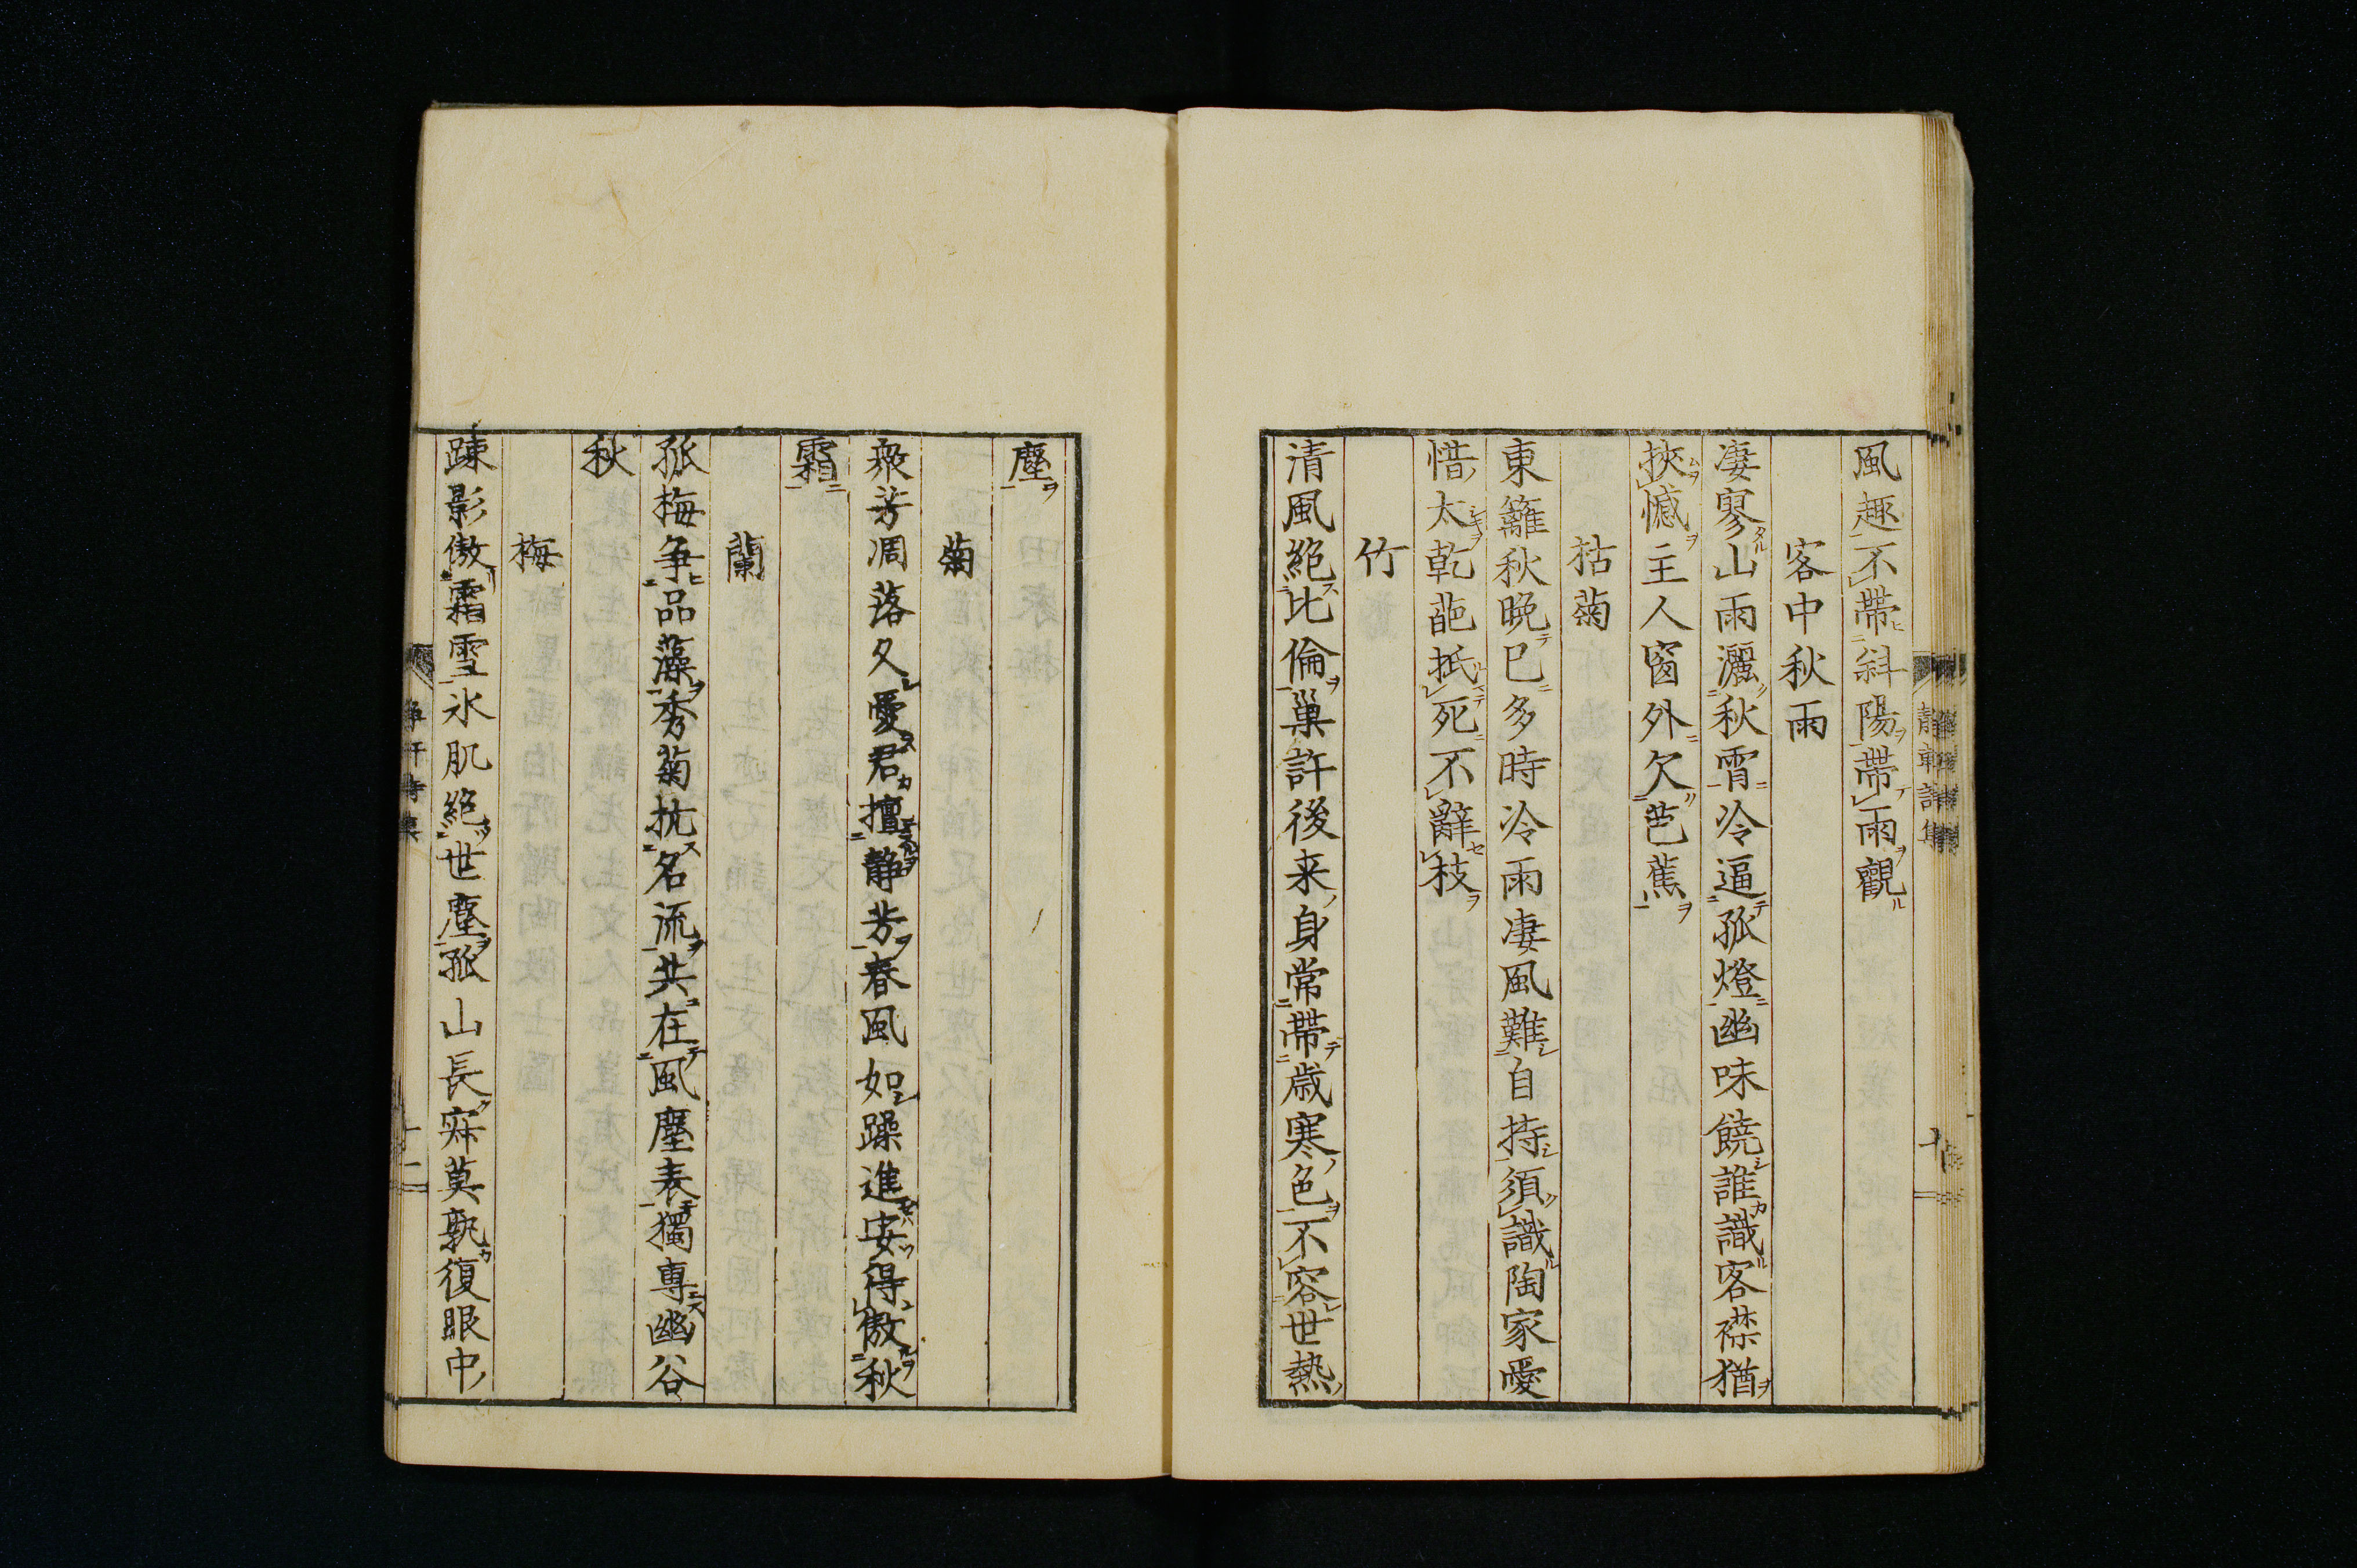 風趣不帶斜陽帶雨觀
客中秋雨
凄寥山雨灑秋霄冷逼孤燈幽味饒誰識客襟猶
挾憾主人窗外欠芭蕉
枯菊
東籬秋晚已多時冷雨凄風難自持須識陶家愛
惜太乾葩抵死不辭枝
竹
清風絕比倫巢許後来身常帶歳寒色不容世熱
塵
菊
衆芳凋落久愛君擅静芳春風如躁進安得傲秋
霜
蘭
孤梅争品藻秀菊抗名流共在風塵表獨專幽谷
秋
梅
踈影傲霜雪氷肌絕世塵孤山長寂莫孰復眼中